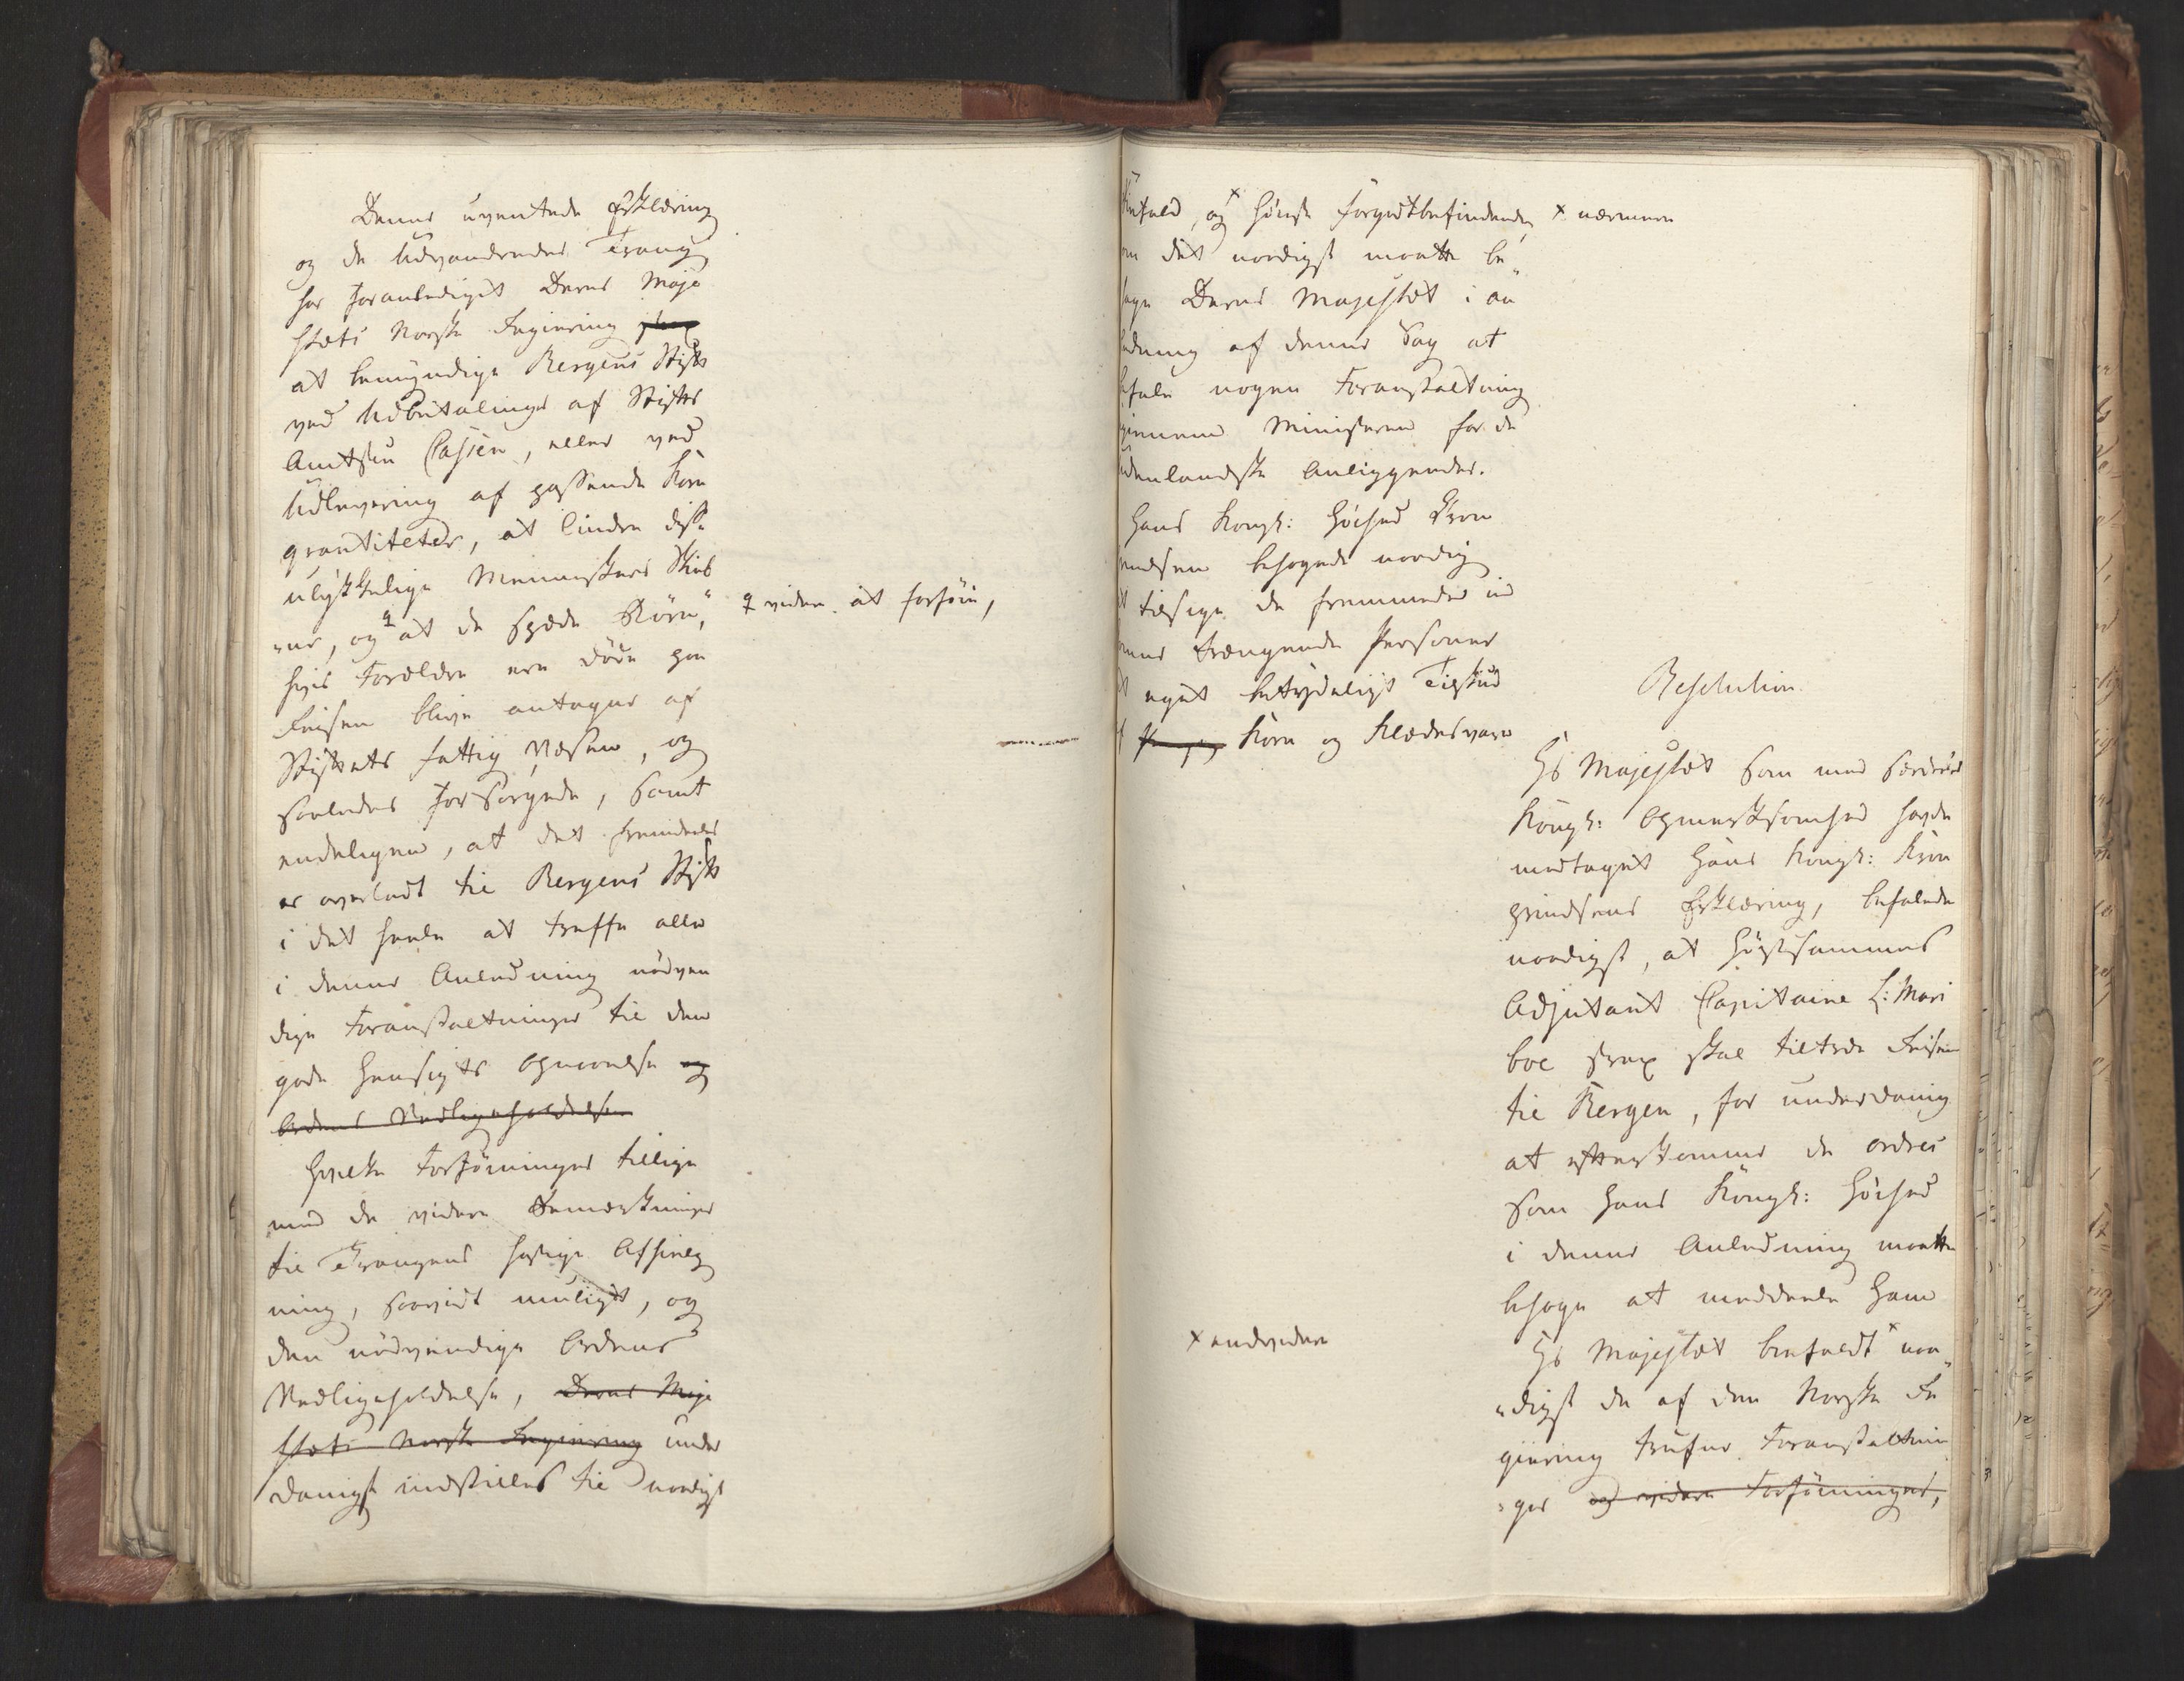 Denne uventede Erklæring
og de Udvandredes Trang
har foranlediget Deres Maje
stæts Norske Regiering strax
at bemyndige Bergens Stift
ved Udbetalinger af Stifts
Amtstu Cassen, eller ved
Udlevering af passende Korn
qvantiteter, at lindre disse
ulykkelige Menneskers Skieb
"ne, og ♀ at de spæde Börn,"
♀ videre at forföie,
hvis Forældre ere döde paa
Reisen blive antagne af
Stiftets fattig Væsen, og
saaledes forsörgede, samt
endeligen, at det fremdeles
er overladt til Bergens Stift
i det heele at træffe alle
i denne Anledning nödven
dige Foranstaltninger til den
gode Hensigts Opnaaelse og
Ordens Vedligeholdelse
Hvilke Forföininger tillige
med de videre Bemærkninger
til Trangens hastige Afhielp
ning, saavidt mueligt, og
den nödvendige Ordens
Vedligeholdelse, Deres Maje
stæts Norske Regiering under
danigst indstilles til naadigst
Bifald, og x höieste forgodtbefindende, x nærmere
om det naadigst maatte be"
hage Deres Majestæt i an
ledning af denne Sag at
befale nogen Foranstaltning
giennem Ministeren for de
udenlandske Anliggender.
Hans Kongl: Höihed Kron
prindsen behagede naadig
at tilsige de fremmede ind
komne trængende Personer
et eget betydeligt Tilskud
af Korn og Klædesvarer
Resolution.
Hs Majestæt som med særdeles
Kongl: Opmærksomhed havde
modtaget Hans Kongl: Kron
prindsens Erklæring, befalede
naadigst, at Höistsammes
Adjutant Capitaine L: Mari
boe strax skal tiltræde Reisen
til Bergen, for underdanig
at efterkomme de ordres
som Hans Kongl: Höihed
i denne Anledning maatte
behage at meddeele Ham
x endvidere
Hs Majestæt bifaldt x naa"
"digst de af den Norske Re
giering trufne Foranstaltnin
"ger og videre Forföininger,